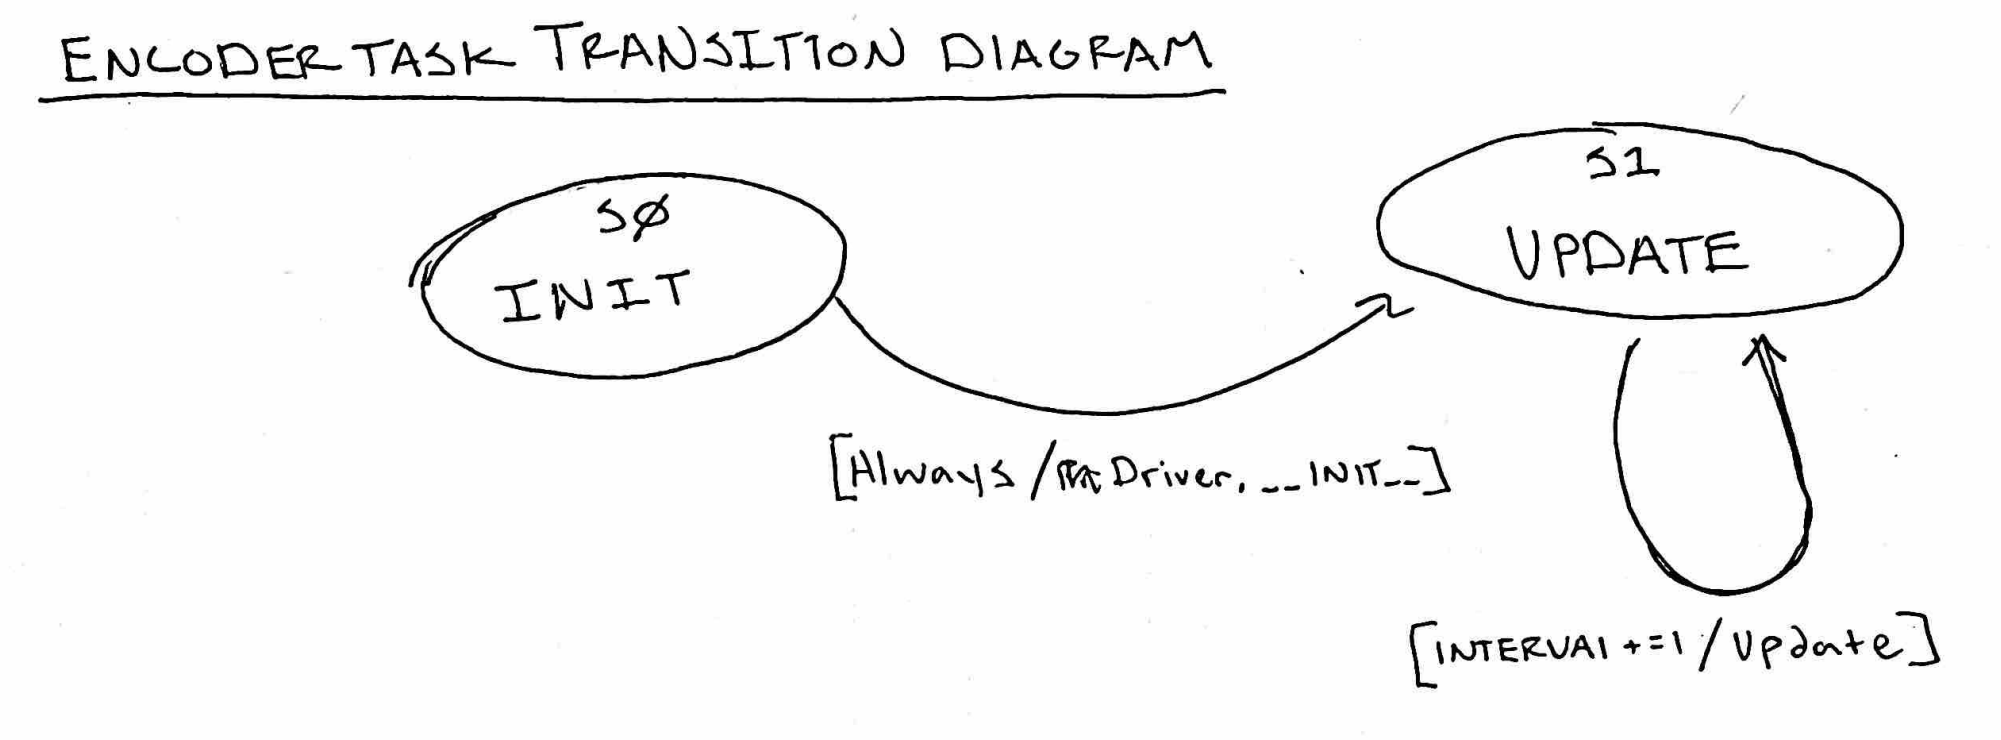 ENCODER TASK TRANSITION DIAGRAM
SØ
INIT
S1
UPDATE
[Always / Driver.__INIT__]
[INTERVAl +=1 / Update]